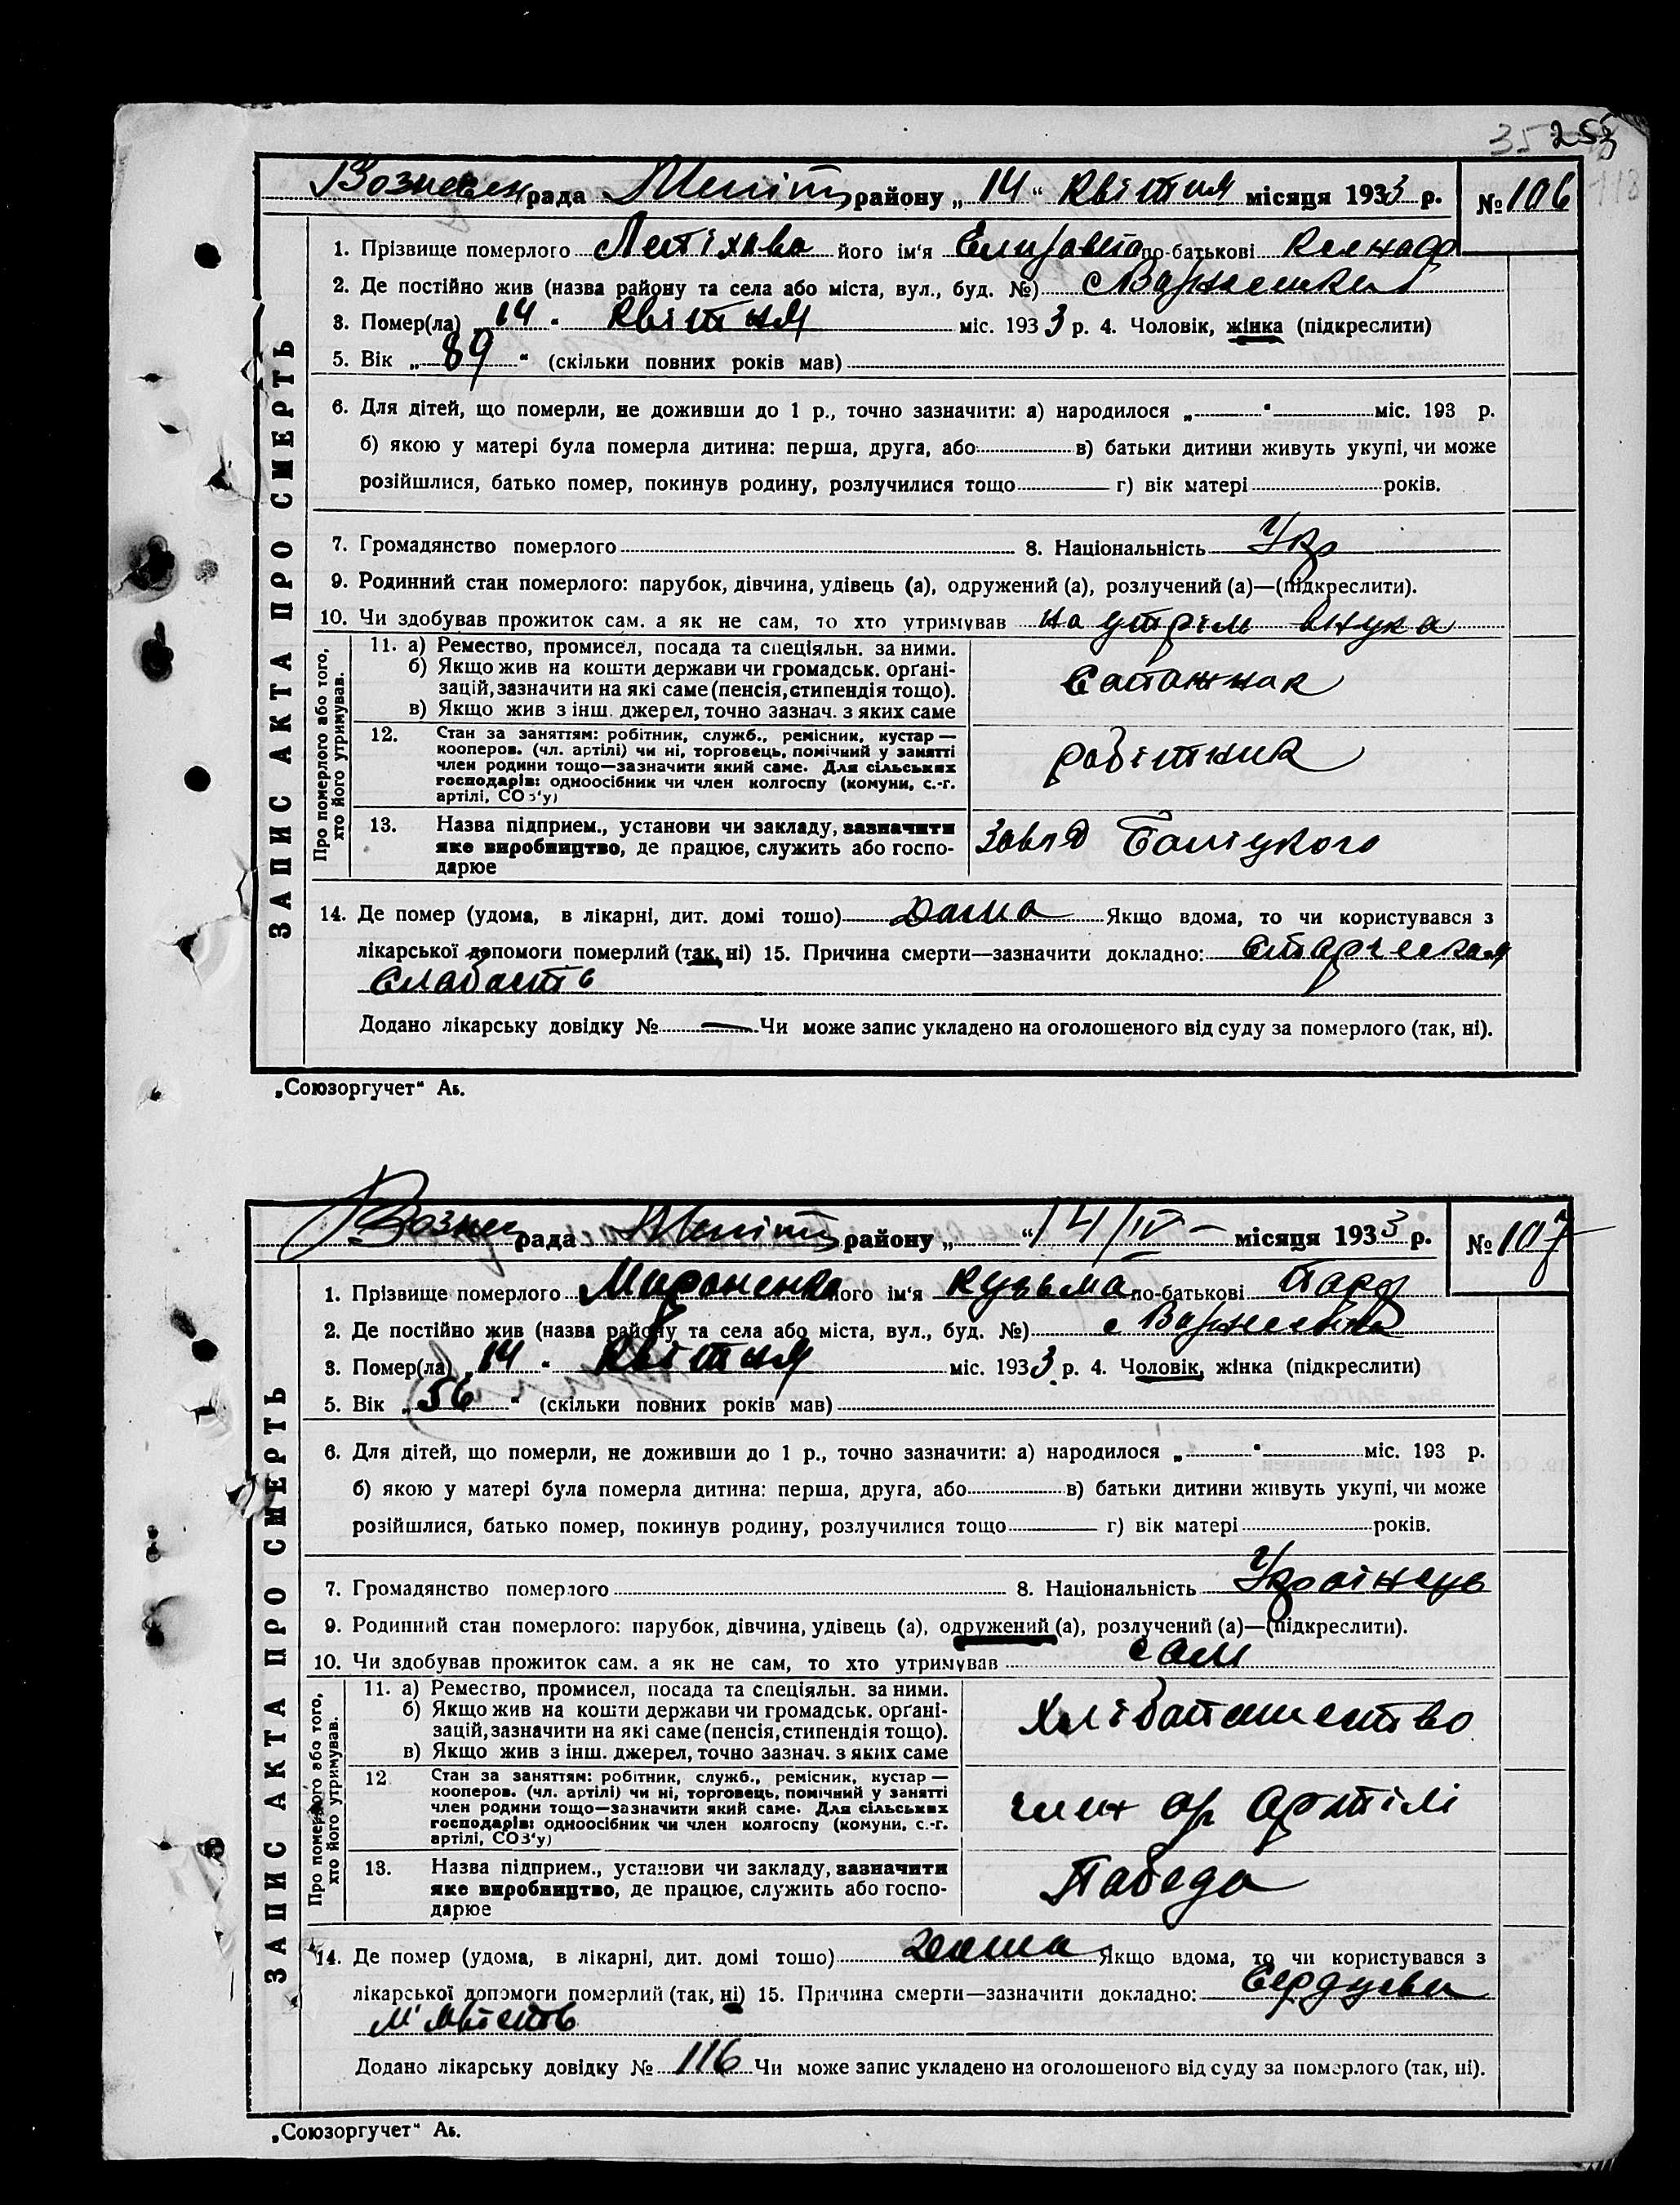 255
Вознесен рада Меліт району „14“ Квітня місяця 1933 р. № 106
ЗАПИС АКТА ПРО СМЕРТЬ
1. Прізвище померлого його ім'я Елизавета по-батькові
2. Де постійно жив (назва району та села або міста, вул., буд. №) с
3. Помер(ла) „14“ Квітня міс. 1933 р. 4. Чоловік, жінка (підкреслити)
5. Вік „89“ (скільки повних років мав)
6. Для дітей, що померли, не доживши до 1 р., точно зазначити: а) народилося „ “ міс. 193 р.
б) якою у матері була померла дитина: перша, друга, або в) батьки дитини живуть укупі, чи може
розійшлися, батько помер, покинув родину, розлучилися тощо г) вік матері років.
7. Громадянство померлого 8. Національність Укр
9. Родинний стан померлого: парубок, дівчина, удівець (а), одружений (а), розлучений (а)—(підкреслити).
10. Чи здобував прожиток сам, а як не сам, то хто утримував на утрім внука
Про померлого або того, хто його утримував.
11. а) Ремество, промисел, посада та спеціяльн. за ними.
б) Якщо жив на кошти держави чи громадськ. органі-
зацій, зазначити на які саме (пенсія, стипендія тощо).
в) Якщо жив з інш. джерел, точно зазнач. з яких саме
Сапожнак
12. Стан за заняттям: робітник, служб., ремісник, кустар—
кооперов. (чл. артілі) чи ні, торговець, помічний у занятті
член родини тощо—зазначити який саме. Для сільських
господарів: одноосібник чи член колгоспу (комуни, с.-г.
артілі, СОЗ'у)
робітник
13. Назва підприєм., установи чи закладу, зазначити
яке виробництво, де працює, служить або госпо-
дарює
Завод Баліцкого
14. Де помер (удома, в лікарні, дит. домі тошо) Дома Якщо вдома, то чи користувався з
лікарської допомоги померлий (так, ні) 15. Причина смерти—зазначити докладно: Старческая
слабость
Додано лікарську довідку № — Чи може запис укладено на оголошеного від суду за померлого (так, ні).
„Союзоргучет“ Аь.
Вознес рада Меліт району „ “ 14/IV – місяця 1933 р. № 107
ЗАПИС АКТА ПРО СМЕРТЬ
1. Прізвище померлого Мироненко його ім'я Кузьма по-батькові Парф
2. Де постійно жив (назва району та села або міста, вул., буд. №) с
3. Помер(ла) „14“ Квітня міс. 1933 р. 4. Чоловік, жінка (підкреслити)
5. Вік „56“ (скільки повних років мав)
6. Для дітей, що померли, не доживши до 1 р., точно зазначити: а) народилося „ “ міс. 193 р.
б) якою у матері була померла дитина: перша, друга, або в) батьки дитини живуть укупі, чи може
розійшлися, батько помер, покинув родину, розлучилися тощо г) вік матері років.
7. Громадянство померлого 8. Національність Українець
9. Родинний стан померлого: парубок, дівчина, удівець (а), одружений (а), розлучений (а)—(підкреслити).
10. Чи здобував прожиток сам, а як не сам, то хто утримував сам
Про померлого або того, хто його утримував.
11. а) Ремество, промисел, посада та спеціяльн. за ними.
б) Якщо жив на кошти держави чи громадськ. органі-
зацій, зазначити на які саме (пенсія, стипендія тощо).
в) Якщо жив з інш. джерел, точно зазнач. з яких саме
Хлібопашество
12. Стан за заняттям: робітник, служб., ремісник, кустар—
кооперов. (чл. артілі) чи ні, торговець, помічний у занятті
член родини тощо—зазначити який саме. Для сільських
господарів: одноосібник чи член колгоспу (комуни, с.-г.
артілі, СОЗ'у)
член ар Артілі
13. Назва підприєм., установи чи закладу, зазначити
яке виробництво, де працює, служить або госпо-
дарює
Победа
14. Де помер (удома, в лікарні, дит. домі тошо) дома Якщо вдома, то чи користувався з
лікарської допомоги померлий (так, ні) 15. Причина смерти—зазначити докладно: Сердцева
Додано лікарську довідку № 116 Чи може запис укладено на оголошеного від суду за померлого (так, ні).
„Союзоргучет“ Аь.